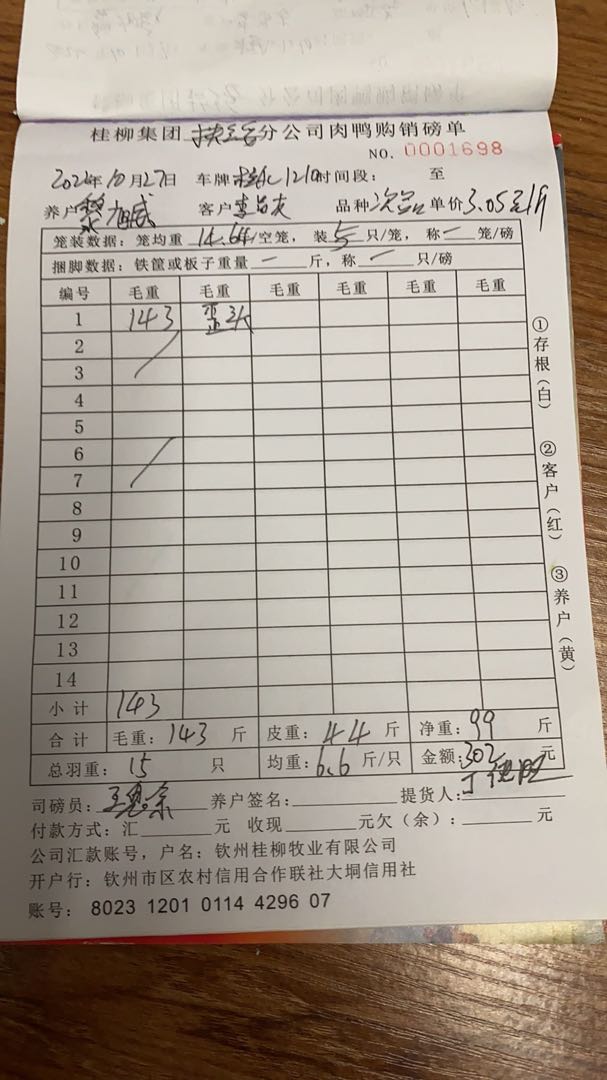 桂柳集团 分公司肉鸭购销磅单
NO. 0001698
2024年10月27日 车牌 1210 时间段： 至
养户 客户 品种 次品 单价 3.05元/斤
笼装数据：笼均重 14.64/空笼，装 5 只/笼，称 一 笼/磅
捆脚数据：铁筐或板子重量 一 斤，称 一 只/磅
编号 毛重 毛重 毛重 毛重 毛重 毛重
1 143 歪头
2
3
4
5
6
7
8
9
10
11
12
13
14
小计 143
合计 毛重：143 斤 皮重：44 斤 净重：99 斤
总羽重：15 只 均重：6.6 斤/只 金额：302 元
司磅员： 养户签名： 提货人：
付款方式：汇 元 收现 元欠（余）： 元
公司汇款账号，户名：钦州桂柳牧业有限公司
开户行：钦州市区农村信用合作联社大垌信用社
账号：8023 1201 0114 4296 07
①存根（白）
②客户（红）
③养户（黄）